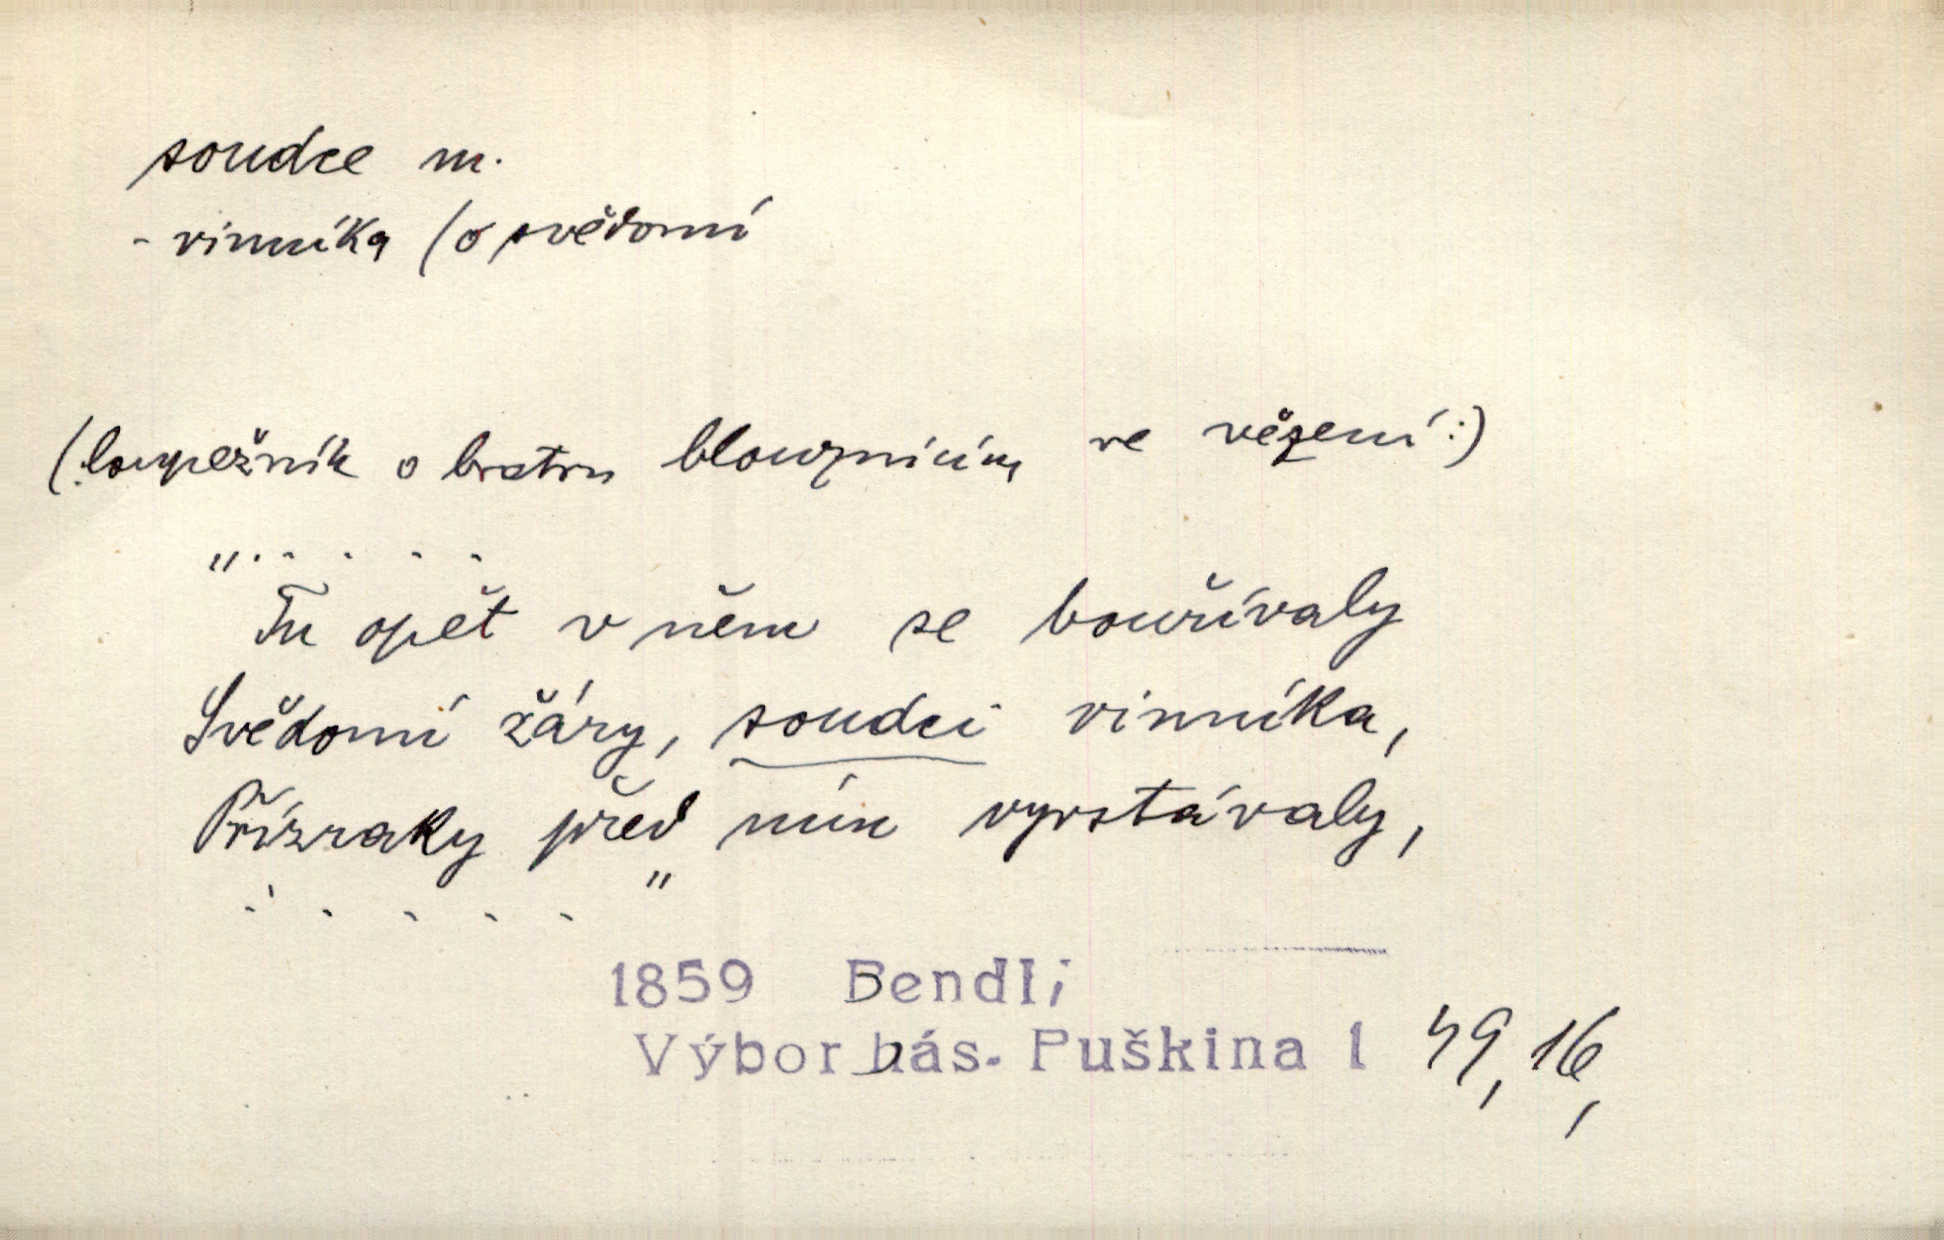 soudce m.
- vinníka (o svědomí
(:loupežník o bratru blouznícím ve vězení:)
„. . . . .
Tu opět v něm se bouřívaly
Svědomí žáry, soudci vinníka,
Přízraky před ním vyrstávaly,
. . . . . "
1859 Bendl;
Výbor bás. Puškina 1 49, 16,